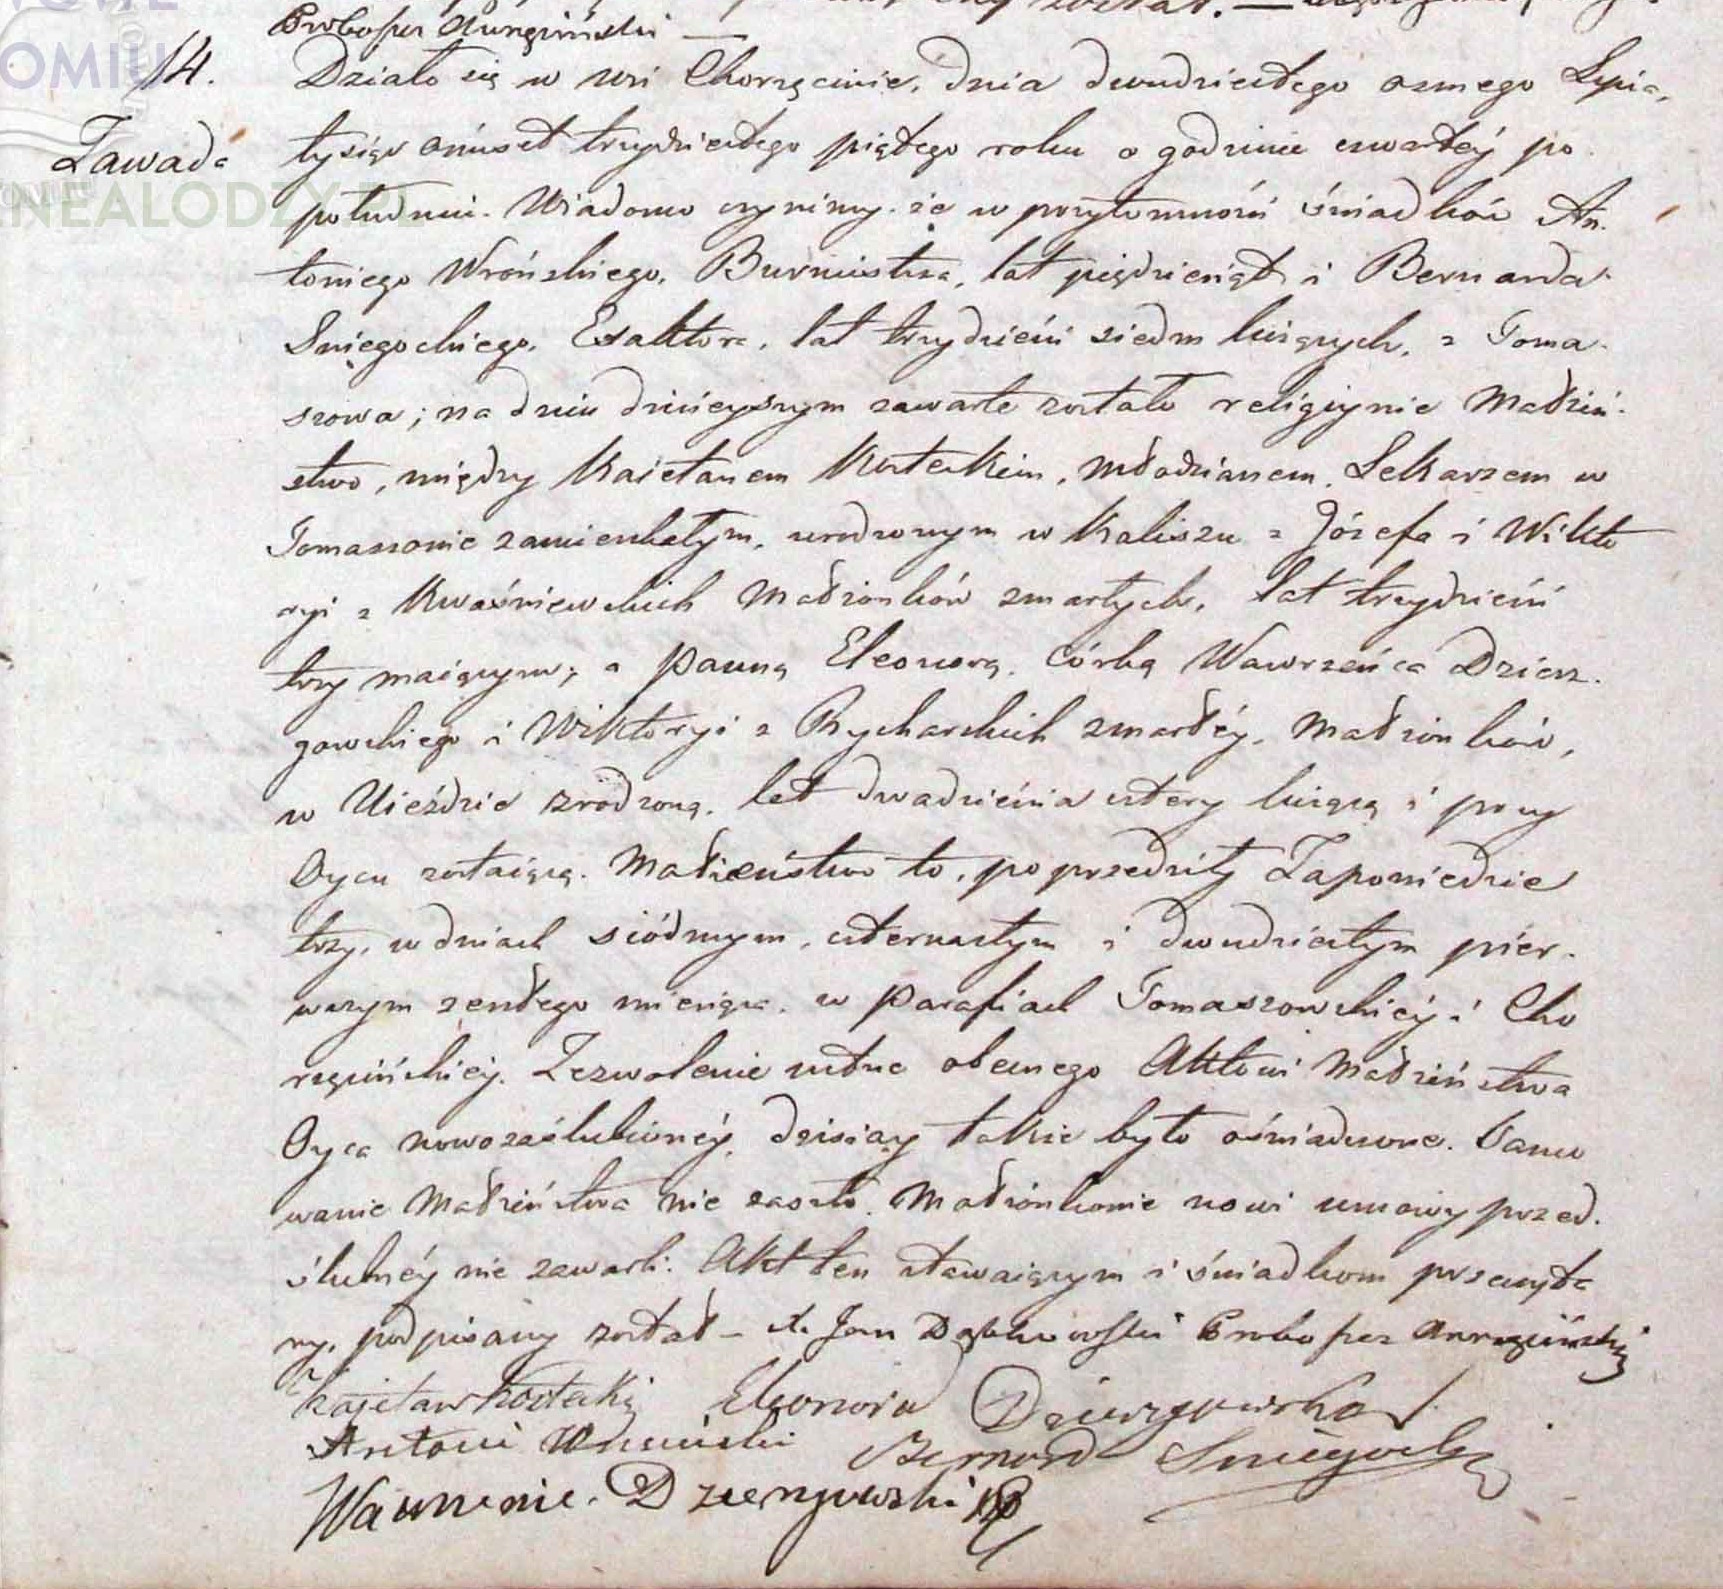 Proboszcz Chorzęciński —
14.
Zawada
Działo się w wsi Chorzęcinie, dnia dwudziestego osmego Lipca,
tysiąc ośmset trzydziestego piątego roku o godzinie czwartéy po
południu. Wiadomo czynimy że w przytomności świadków An-
toniego Wrońskiego, Burmistrza, lat pięćdziesiąt i Bernarda
Sniegockiego, Exaktora, lat trzydzieści siedm liczących, z Toma-
szowa; na dniu dzisieyszym zawarte zostało religiynie Małżeń-
stwo, między Kaietanem Kosteckim, młodzianem, Lekarzem w
Tomaszowie zamieszkałym, urodzonym w Kaliszu z Józefa i Wikto
ryi z Kwaśniewskich Małżonków zmarłych, lat trzydzieści
trzy maiącym; a Panną Eleonorą, córką Wawrzeńca Dzierz-
gowskiego i Wiktoryi z Rycharskich zmarłéy, Małżonków,
w Uieździe zrodzoną, lat dwadzieścia cztery liczącą i przy
Oycu zostaiącą. Małżeństwo to, poprzedziły Zapowiedzie
trzy, w dniach siódmym, czternastym i dwudziestym pier-
wszym zeszłego miesiąca, w Parafiach Tomaszowskiéy i Cho
rzęcińskiéy. Zezwolenie ustne obecnego Aktowi Małżeństwa
Oyca nowozaślubionéy, dzisiay także było oświadczone. Tamo
wanie Małżeństwa nie zaszło. Małżonkowie nowi umowy przed-
ślubnéy nie zawarli. Akt ten stawaiącym i świadkom przeczyta
ny, podpisany został — X. Jan Dąbkowski Proboszcz Chorzęciński
Kajetan Kostecki Eleonora Dzierzgowska
Antoni Wroński Bernard Sniegocki
Wawrzenie. Dzierzgowski